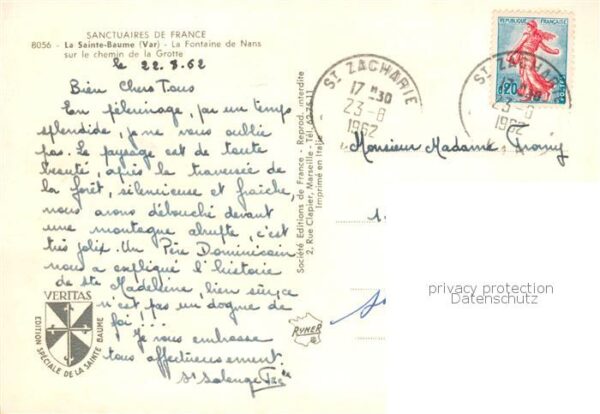 SANCTUAIRES DE FRANCE
8056 - La Sainte-Baume (Var) - La Fontaine de Nans
sur le chemin de la Grotte
le 22.8.62
Bien Chers Tous
En pèlerinage, par un temps
splendide, je ne vous oublie
pas. Le paysage est de toute
beauté, après la traversée de
la forêt, silencieuse et fraîche,
nous avons débouché devant
une montagne abrupte, c'est
très joli. Un Père Dominicain
nous a expliqué l'histoire
de Ste Madeleine, bien sûr, ce
n'est pas un dogme de
foi...
Je vous embrasse
tous affectueusement.
Sr Solange
VERITAS
EDITION SPÉCIALE DE LA SAINTE BAUME
Société Editions de France - Reprod. interdite
2, Rue Clapier, Marseille - Tél. 62-75-11
Imprimé en Italie
RUMER
ST ZACHARIE
17 H 30
23-8
1962
ST ZACHARIE
1962
REPUBLIQUE FRANÇAISE
0,20
POSTES
Monsieur Madame
privacy protection
Datenschutz